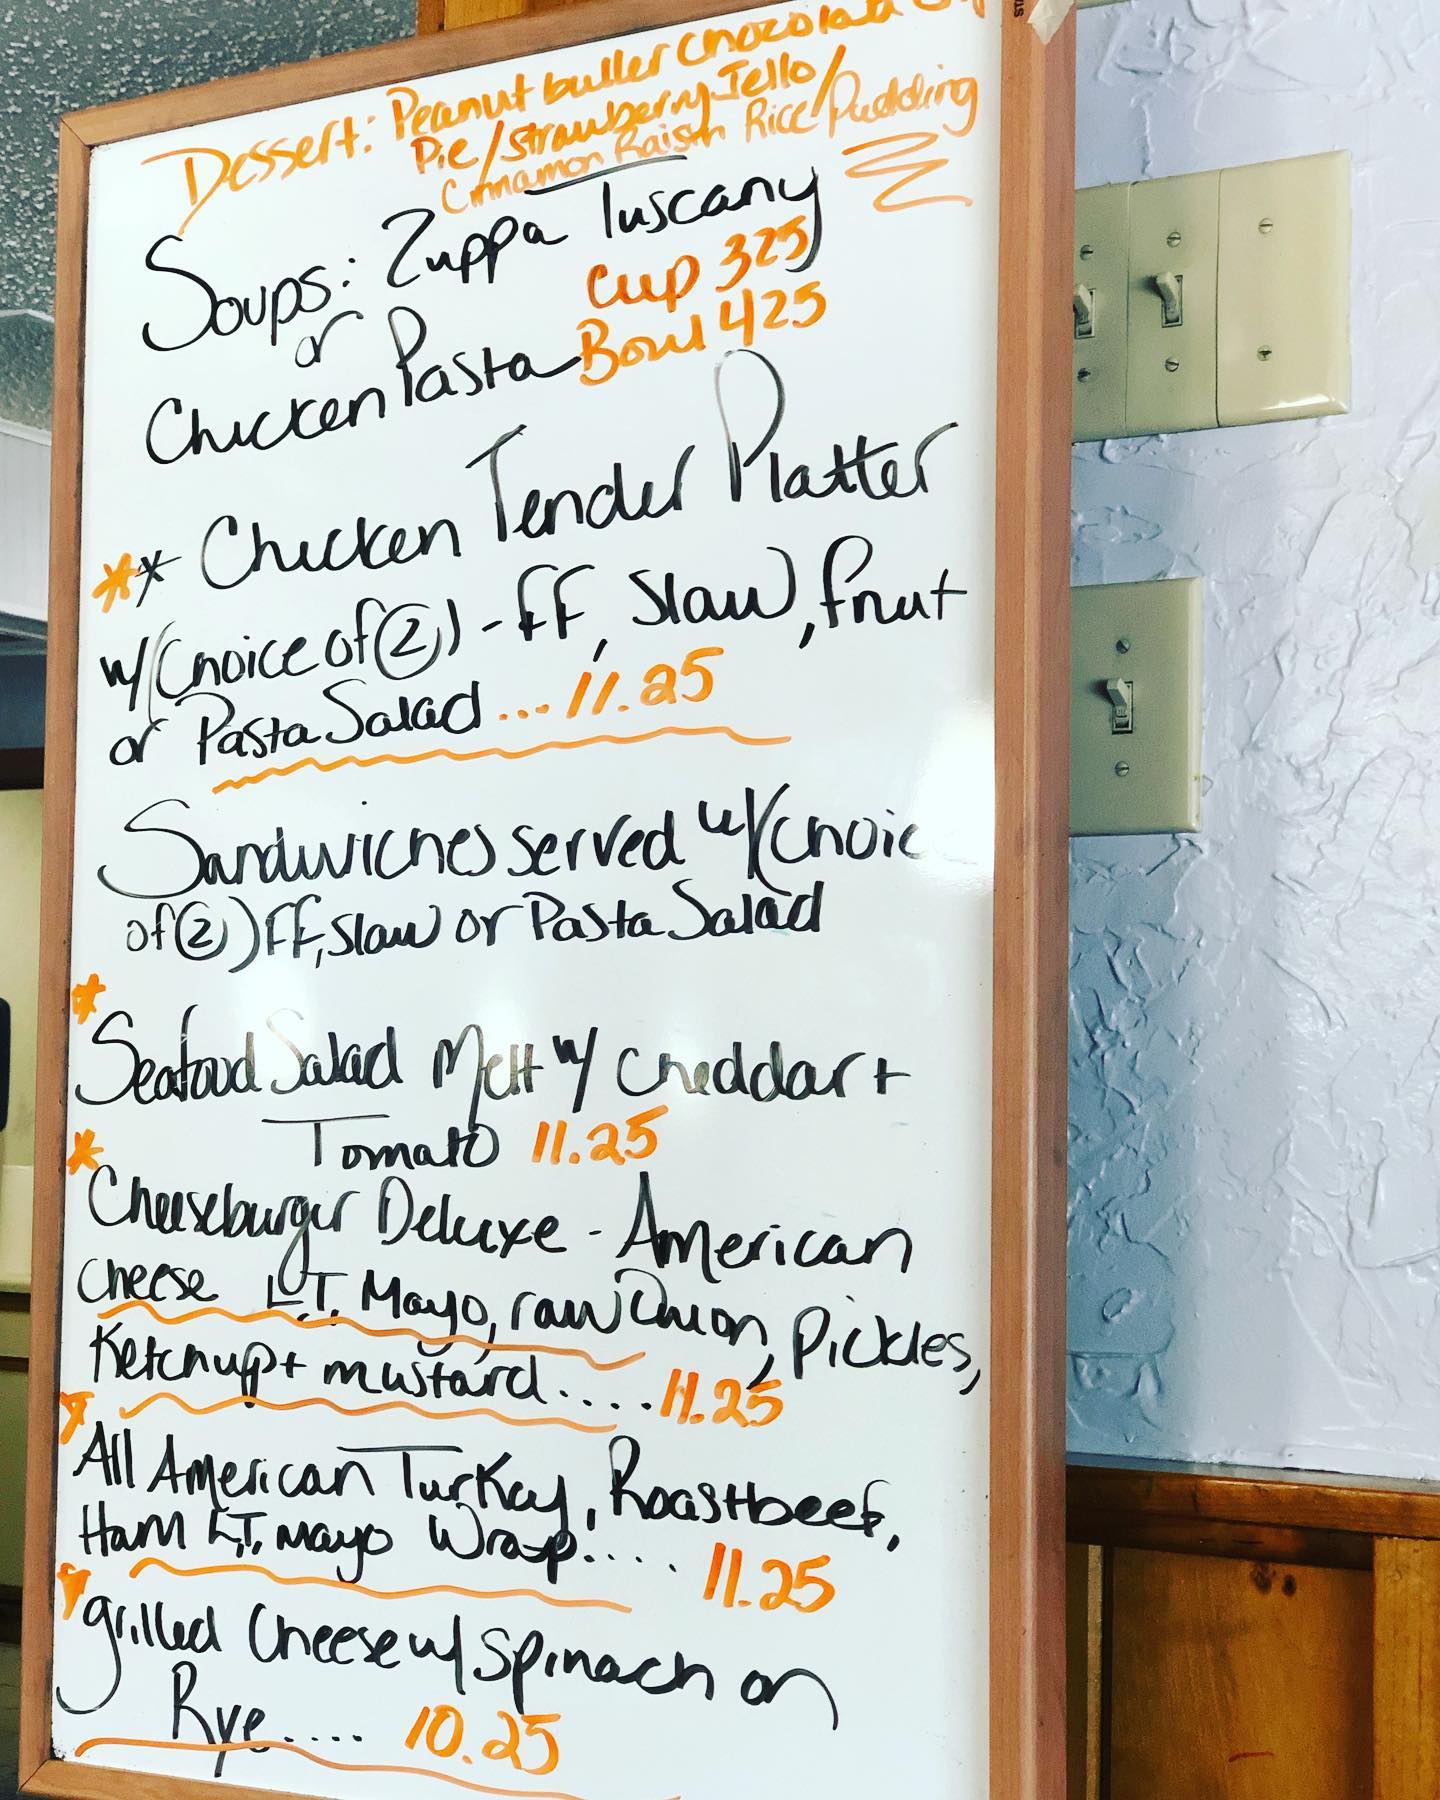 Dessert: Peanut butter Chocolate
Pie/strawberry Jello/
Cinnamon Raisin Rice/Pudding
Soups: Zuppa Tuscany
or
Cup 325
Chicken Pasta Bowl 425
** Chicken Tender Platter
w/(Choice of (2)) - FF, Slaw, fruit
or Pasta Salad ... 11.25
Sandwiches served w/(choic
of (2)) FF, Slaw or Pasta Salad
* Seafood Salad Melt w/ Cheddar +
Tomato 11.25
* Cheeseburger Deluxe - American
cheese L.T. Mayo, raw Onion, Pickles,
Ketchup + mustard.... 11.25
* All American Turkey, Roastbeef,
Ham L,T, mayo Wrap.... 11.25
* grilled Cheese w/ Spinach on
Rye.... 10.25